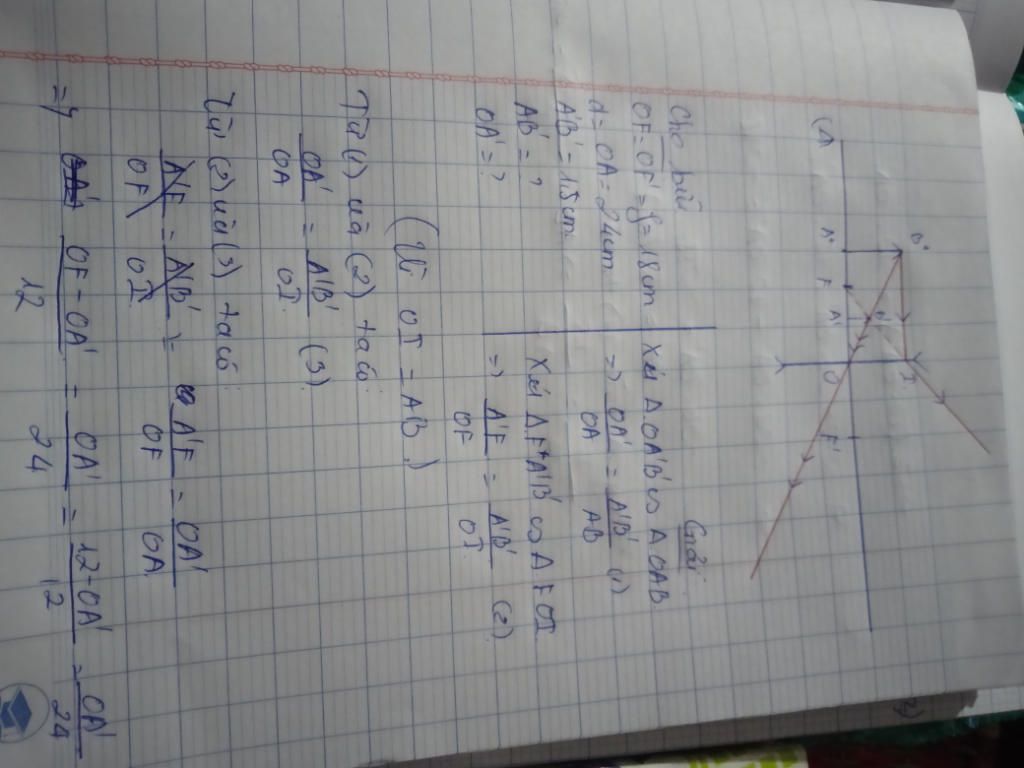 (Δ
B
I
A
F
A'
B'
O
F'
Giải
Cho biết
OF = OF' = f = 18cm
d = OA = 24cm
A'B' = 1,5cm
A'B' = ?
OA' = ?
Xét Δ OA'B' ∽ Δ OAB
=> OA'/OA = A'B'/AB (1)
Xét Δ FA'B' ∽ Δ FOI
=> A'F/OF = A'B'/OI (2)
(Vì OI = AB)
Từ (1) và (2) ta có
OA'/OA = A'B'/OI (3)
Từ (2) và (3) ta có:
A'F/OF = A'B'/OI = A'F/OF = OA'/OA
=> OF - OA'/12 = OA'/24 = 12 - OA'/12 = OA'/24